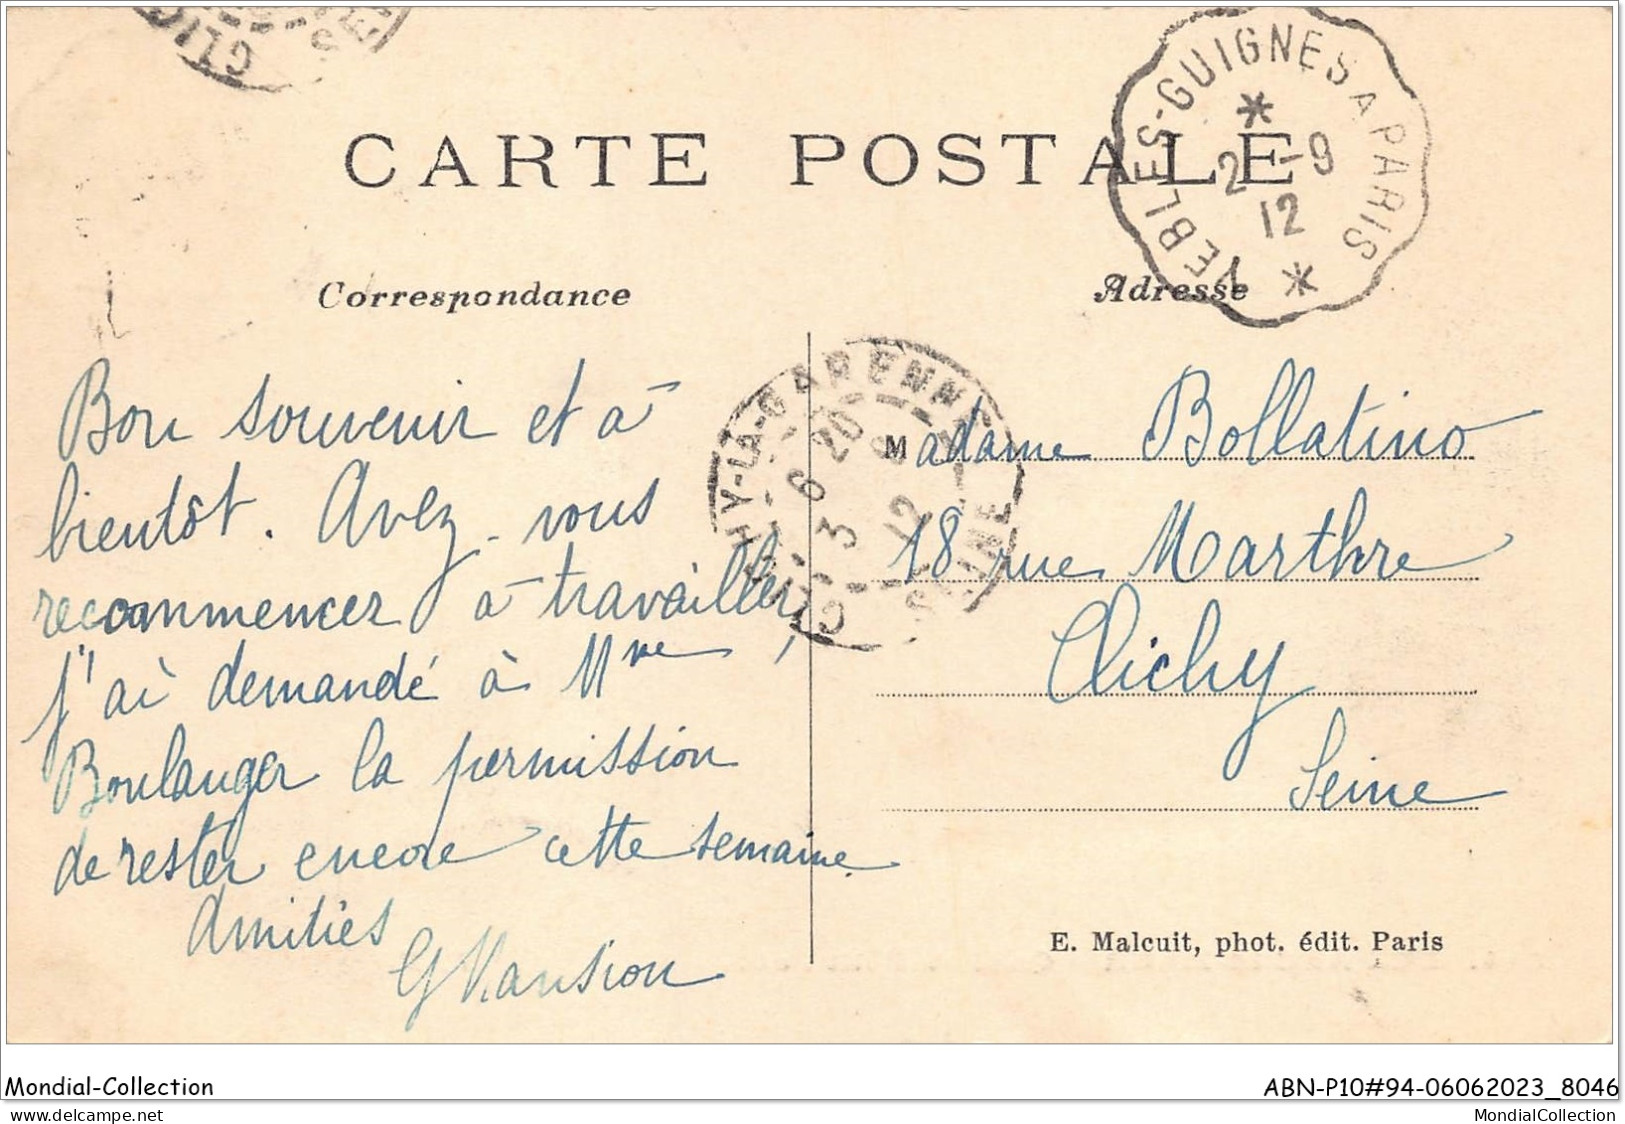 CARTE POSTALE
VERLES-GUIGNES A PARIS
2 -9
12
Correspondance
Adresse
Bon souvenir et à
bientôt. Avez-vous
recommencer à travailler,
j'ai demandé à Mme
Boulanger la permission
de rester encore cette semaine.
Amitiés
G Mansion
LA-GARENNE
6 20
3 9
12
SEINE
Madame Bollatino
18 rue Marthre
Clichy
Seine
E. Malcuit, phot. édit. Paris
Mondial-Collection
ABN-P10#94-06062023_8046
delcampe.net
MondialCollection